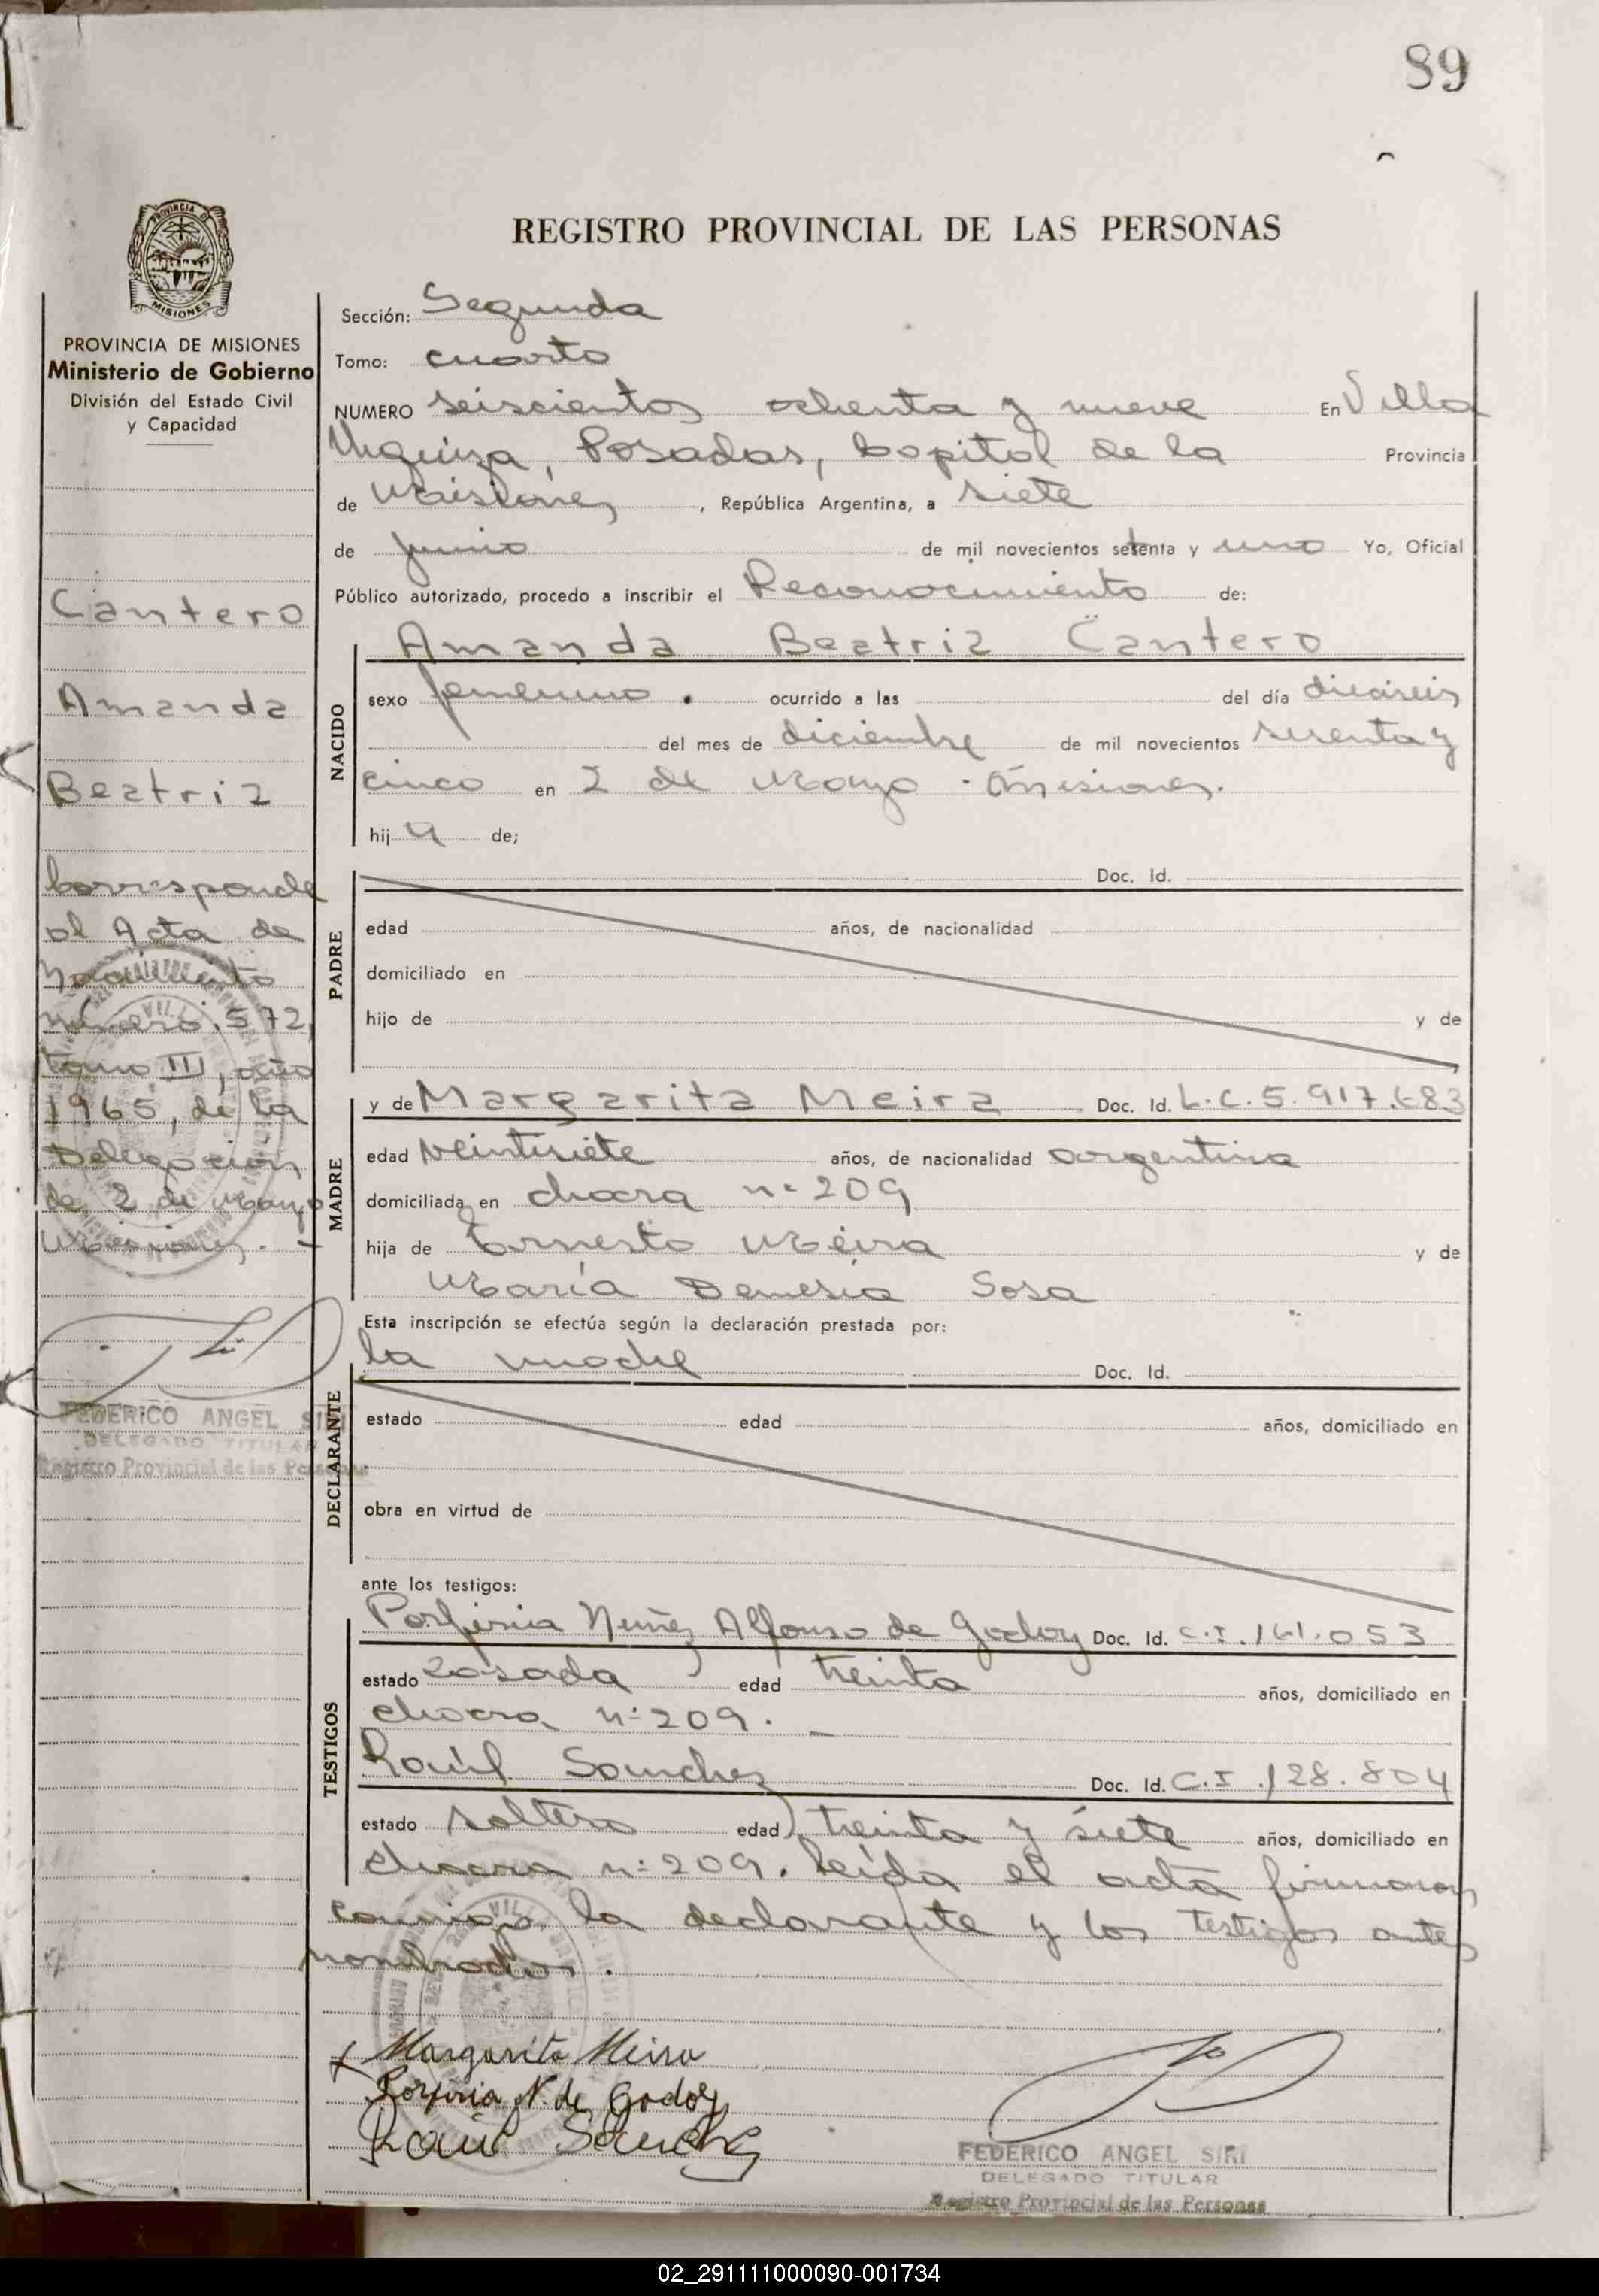 89
REGISTRO PROVINCIAL DE LAS PERSONAS
MISIONES
PROVINCIA DE MISIONES
Ministerio de Gobierno
División del Estado Civil
y Capacidad
Cantero
Amanda
Beatriz
Corresponde
al Acta de
Nacimiento
número 572,
tomo III, año
1965, de la
Delegación
de 2 de Mayo
Misiones. -
FEDERICO ANGEL SIRI
DELEGADO TITULAR
Registro Provincial de las Personas
Sección: Segunda
Tomo: cuarto
NUMERO seiscientos ochenta y nueve En Villa
Urquiza, Posadas, Capital de la Provincia
de Misiones, República Argentina, a siete
de junio de mil novecientos setenta y uno Yo, Oficial
Público autorizado, procedo a inscribir el Reconocimiento de:
Amanda Beatriz Cantero
NACIDO
sexo femenino. ocurrido a las del día dieciseis
del mes de diciembre de mil novecientos sesenta y
cinco en 2 de Mayo - Misiones.
hij a de;
PADRE
Doc. Id.
edad años, de nacionalidad
domiciliado en
hijo de y de
MADRE
y de Margarita Meira Doc. Id. L.C. 5.917.683
edad veintisiete años, de nacionalidad argentina
domiciliada en chacra n° 209
hija de Ernesto Meira y de
María Demesia Sosa
Esta inscripción se efectúa según la declaración prestada por:
la madre Doc. Id.
DECLARANTE
estado edad años, domiciliado en
obra en virtud de
ante los testigos:
TESTIGOS
Porfiria Nuñez Alfonso de Godoy Doc. Id. C.I. 161.053
estado casada edad treinta años, domiciliado en
chacra n° 209. -
Raúl Sanchez Doc. Id. C.I. 128.804
estado soltero edad treinta y siete años, domiciliado en
chacra n° 209. Leída el acta firmaron
conmigo la declarante y los testigos antes
nombrados.
x Margarita Meira
Porfiria N. de Godoy
Raúl Sanchez
FEDERICO ANGEL SIRI
DELEGADO TITULAR
Registro Provincial de las Personas
02_291111000090-001734